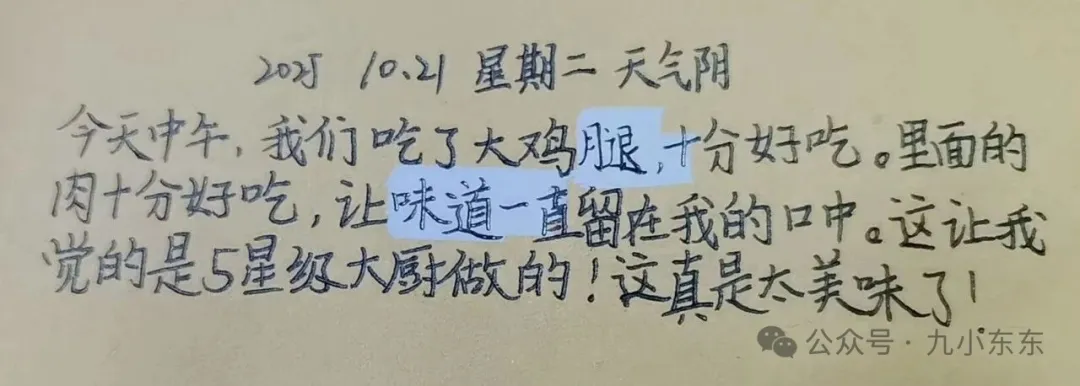 2025 10.21 星期二 天气阴
今天中午,我们吃了大鸡腿,十分好吃。里面的
肉十分好吃,让味道一直留在我的口中。这让我
觉的是5星级大厨做的!这真是太美味了!
公众号·九小东东